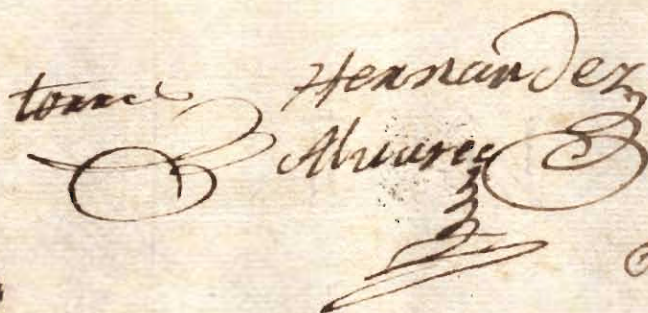 torre Hernandez
Alvarez